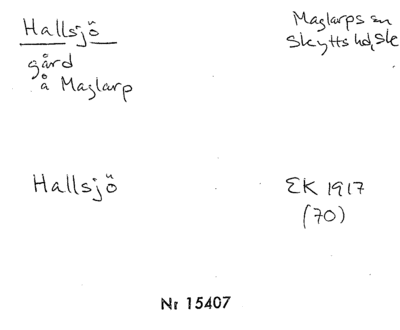 Hallsjö
gård
å Maglarp
Maglarps sn
Skytts hd, Ske
Hallsjö
EK 1917
(70)
Nr 15407